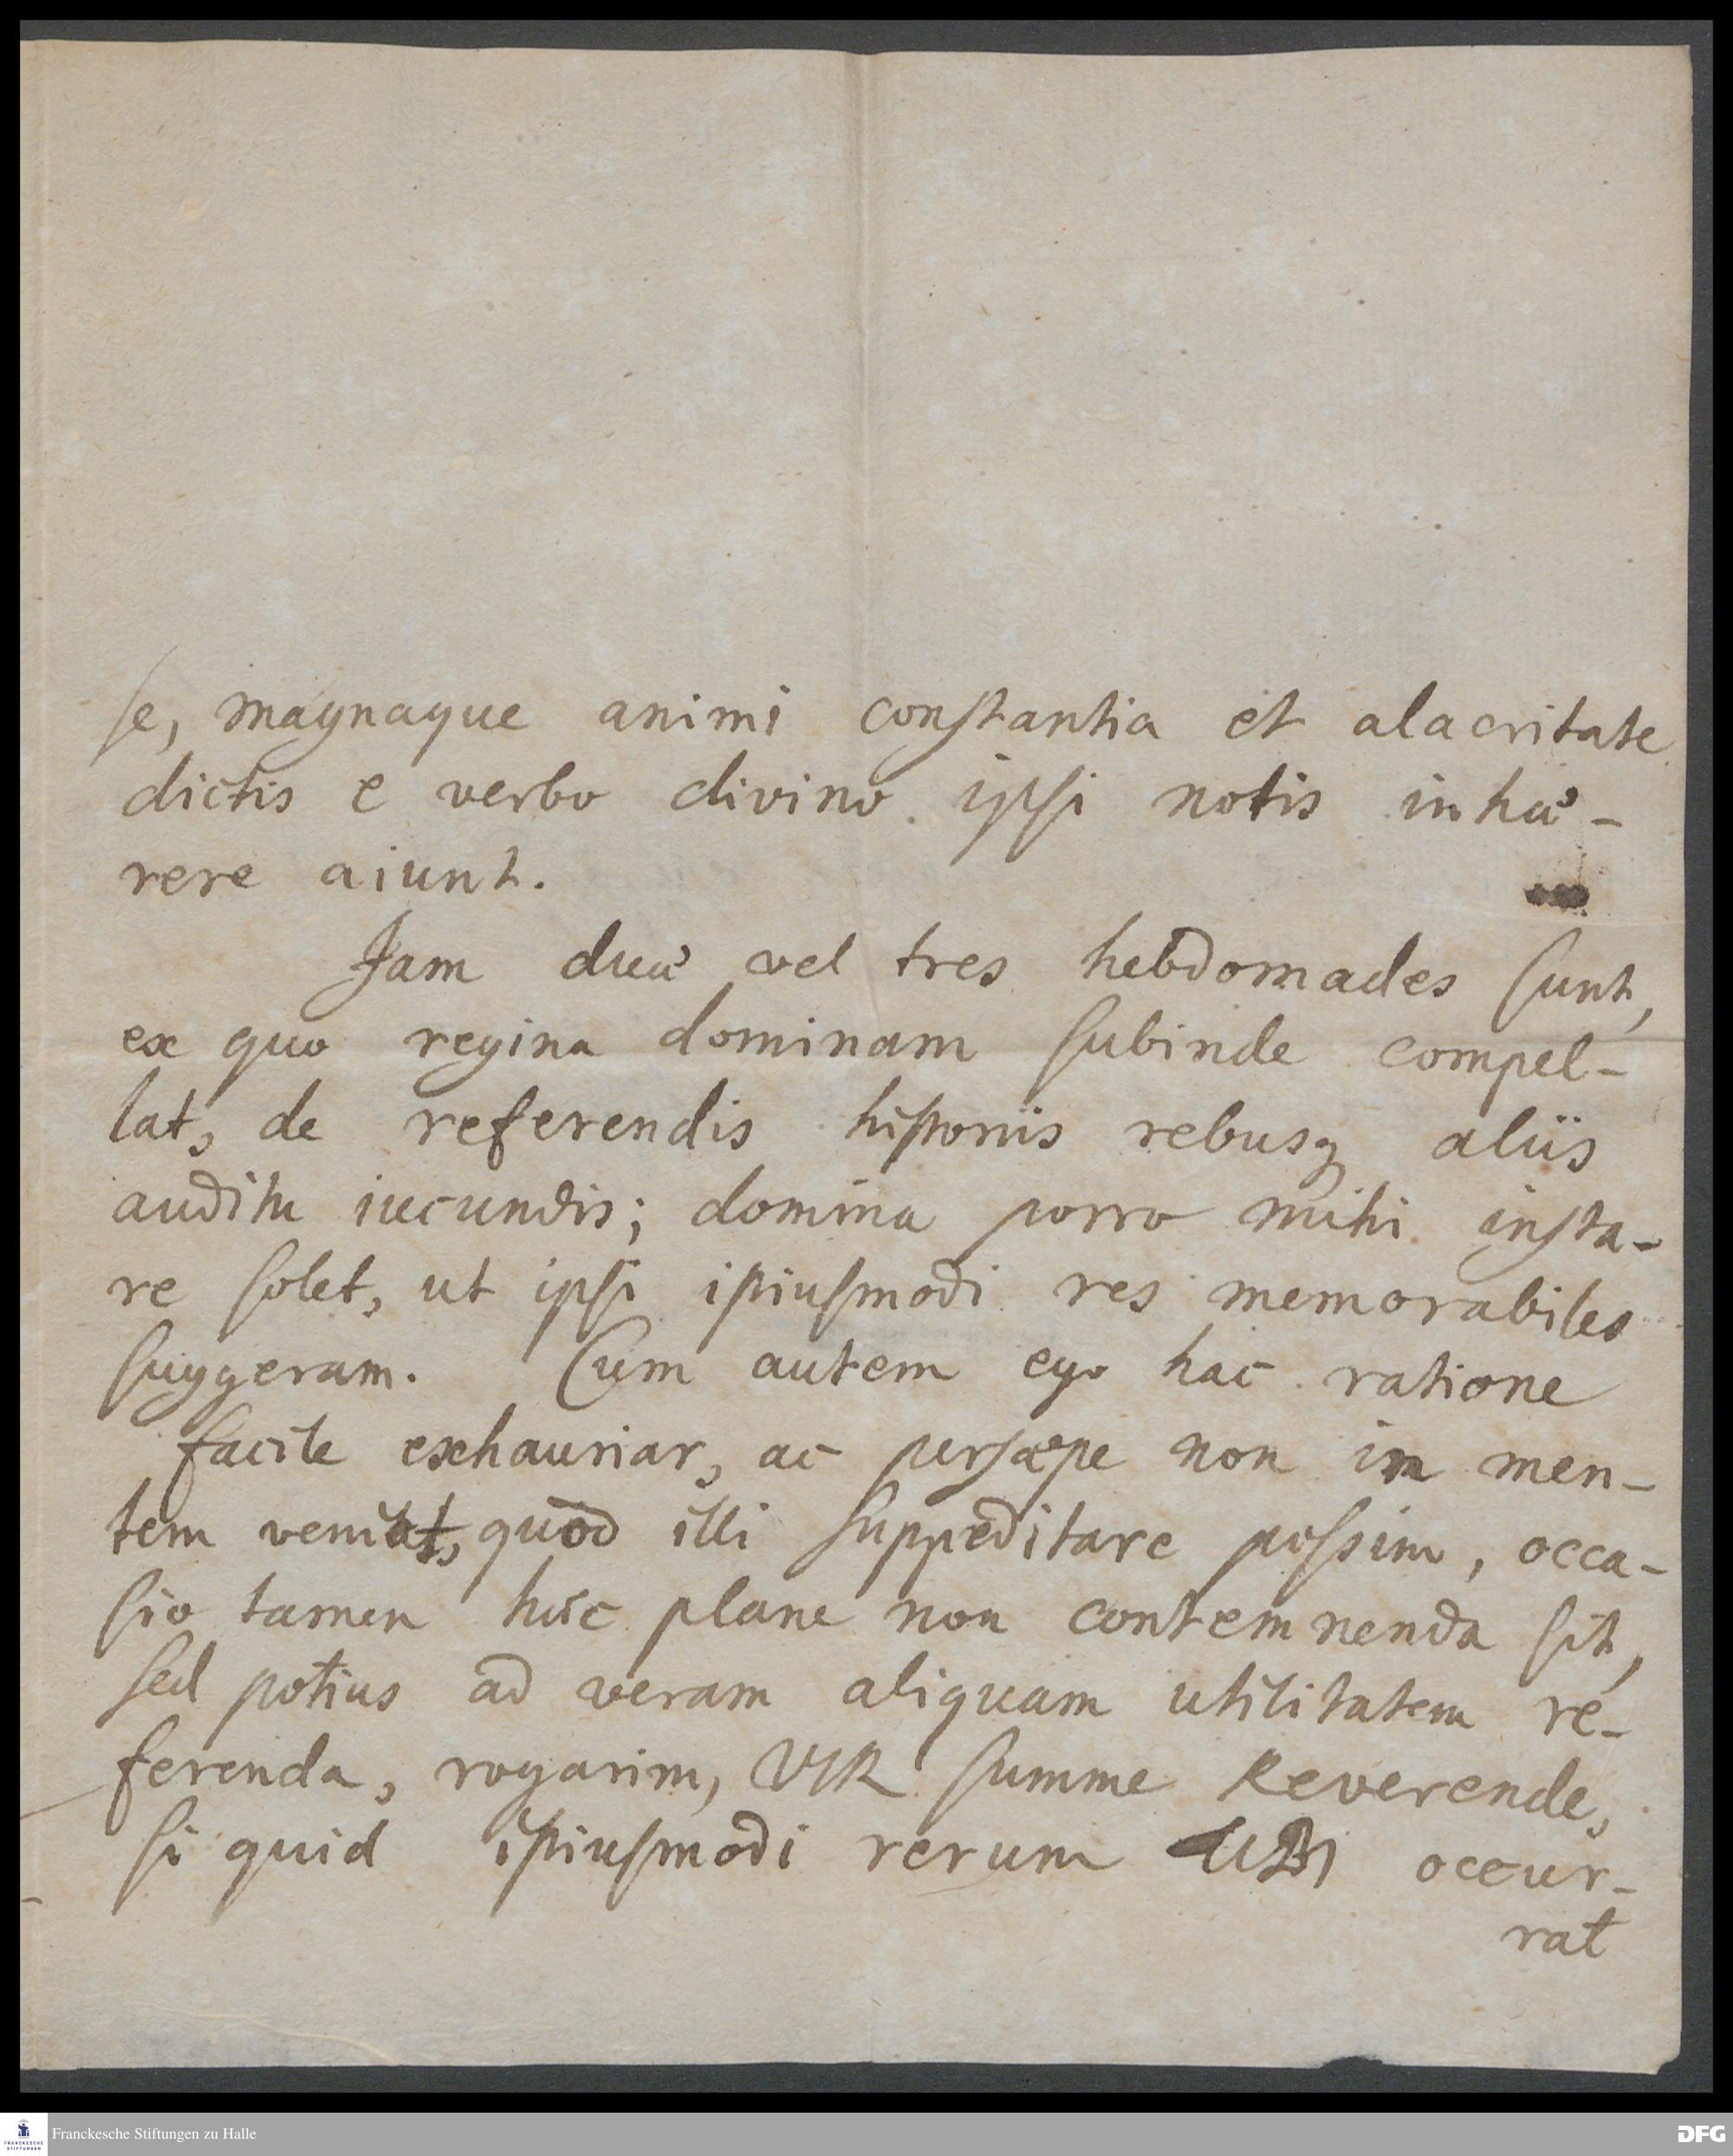 se, magnaque animi constantia et alacritate
dictis e verbo divino ipsi notis inhæ-
rere aiunt.
Jam duæ vel tres hebdomades sunt,
ex quo regina dominam subinde compel-
lat, de referendis historiis rebusq aliis
auditu iucundis; domina porro mihi insta-
re solet, ut ipsi istiusmodi res memorabiles
suggeram. Cum autem ego hac ratione
facile exhauriar, ac persæpe non in men-
tem veniat, quod illi suppeditare possim, occa-
sio tamen hæc plane non contemnenda sit,
sed potius ad veram aliquam utilitatem re-
ferenda, rogarim, VIR summe Reverende,
si quid istiusmodi rerum TIBI occur-
rat
FRANCKESCHE STIFTUNGEN
Franckesche Stiftungen zu Halle
DFG